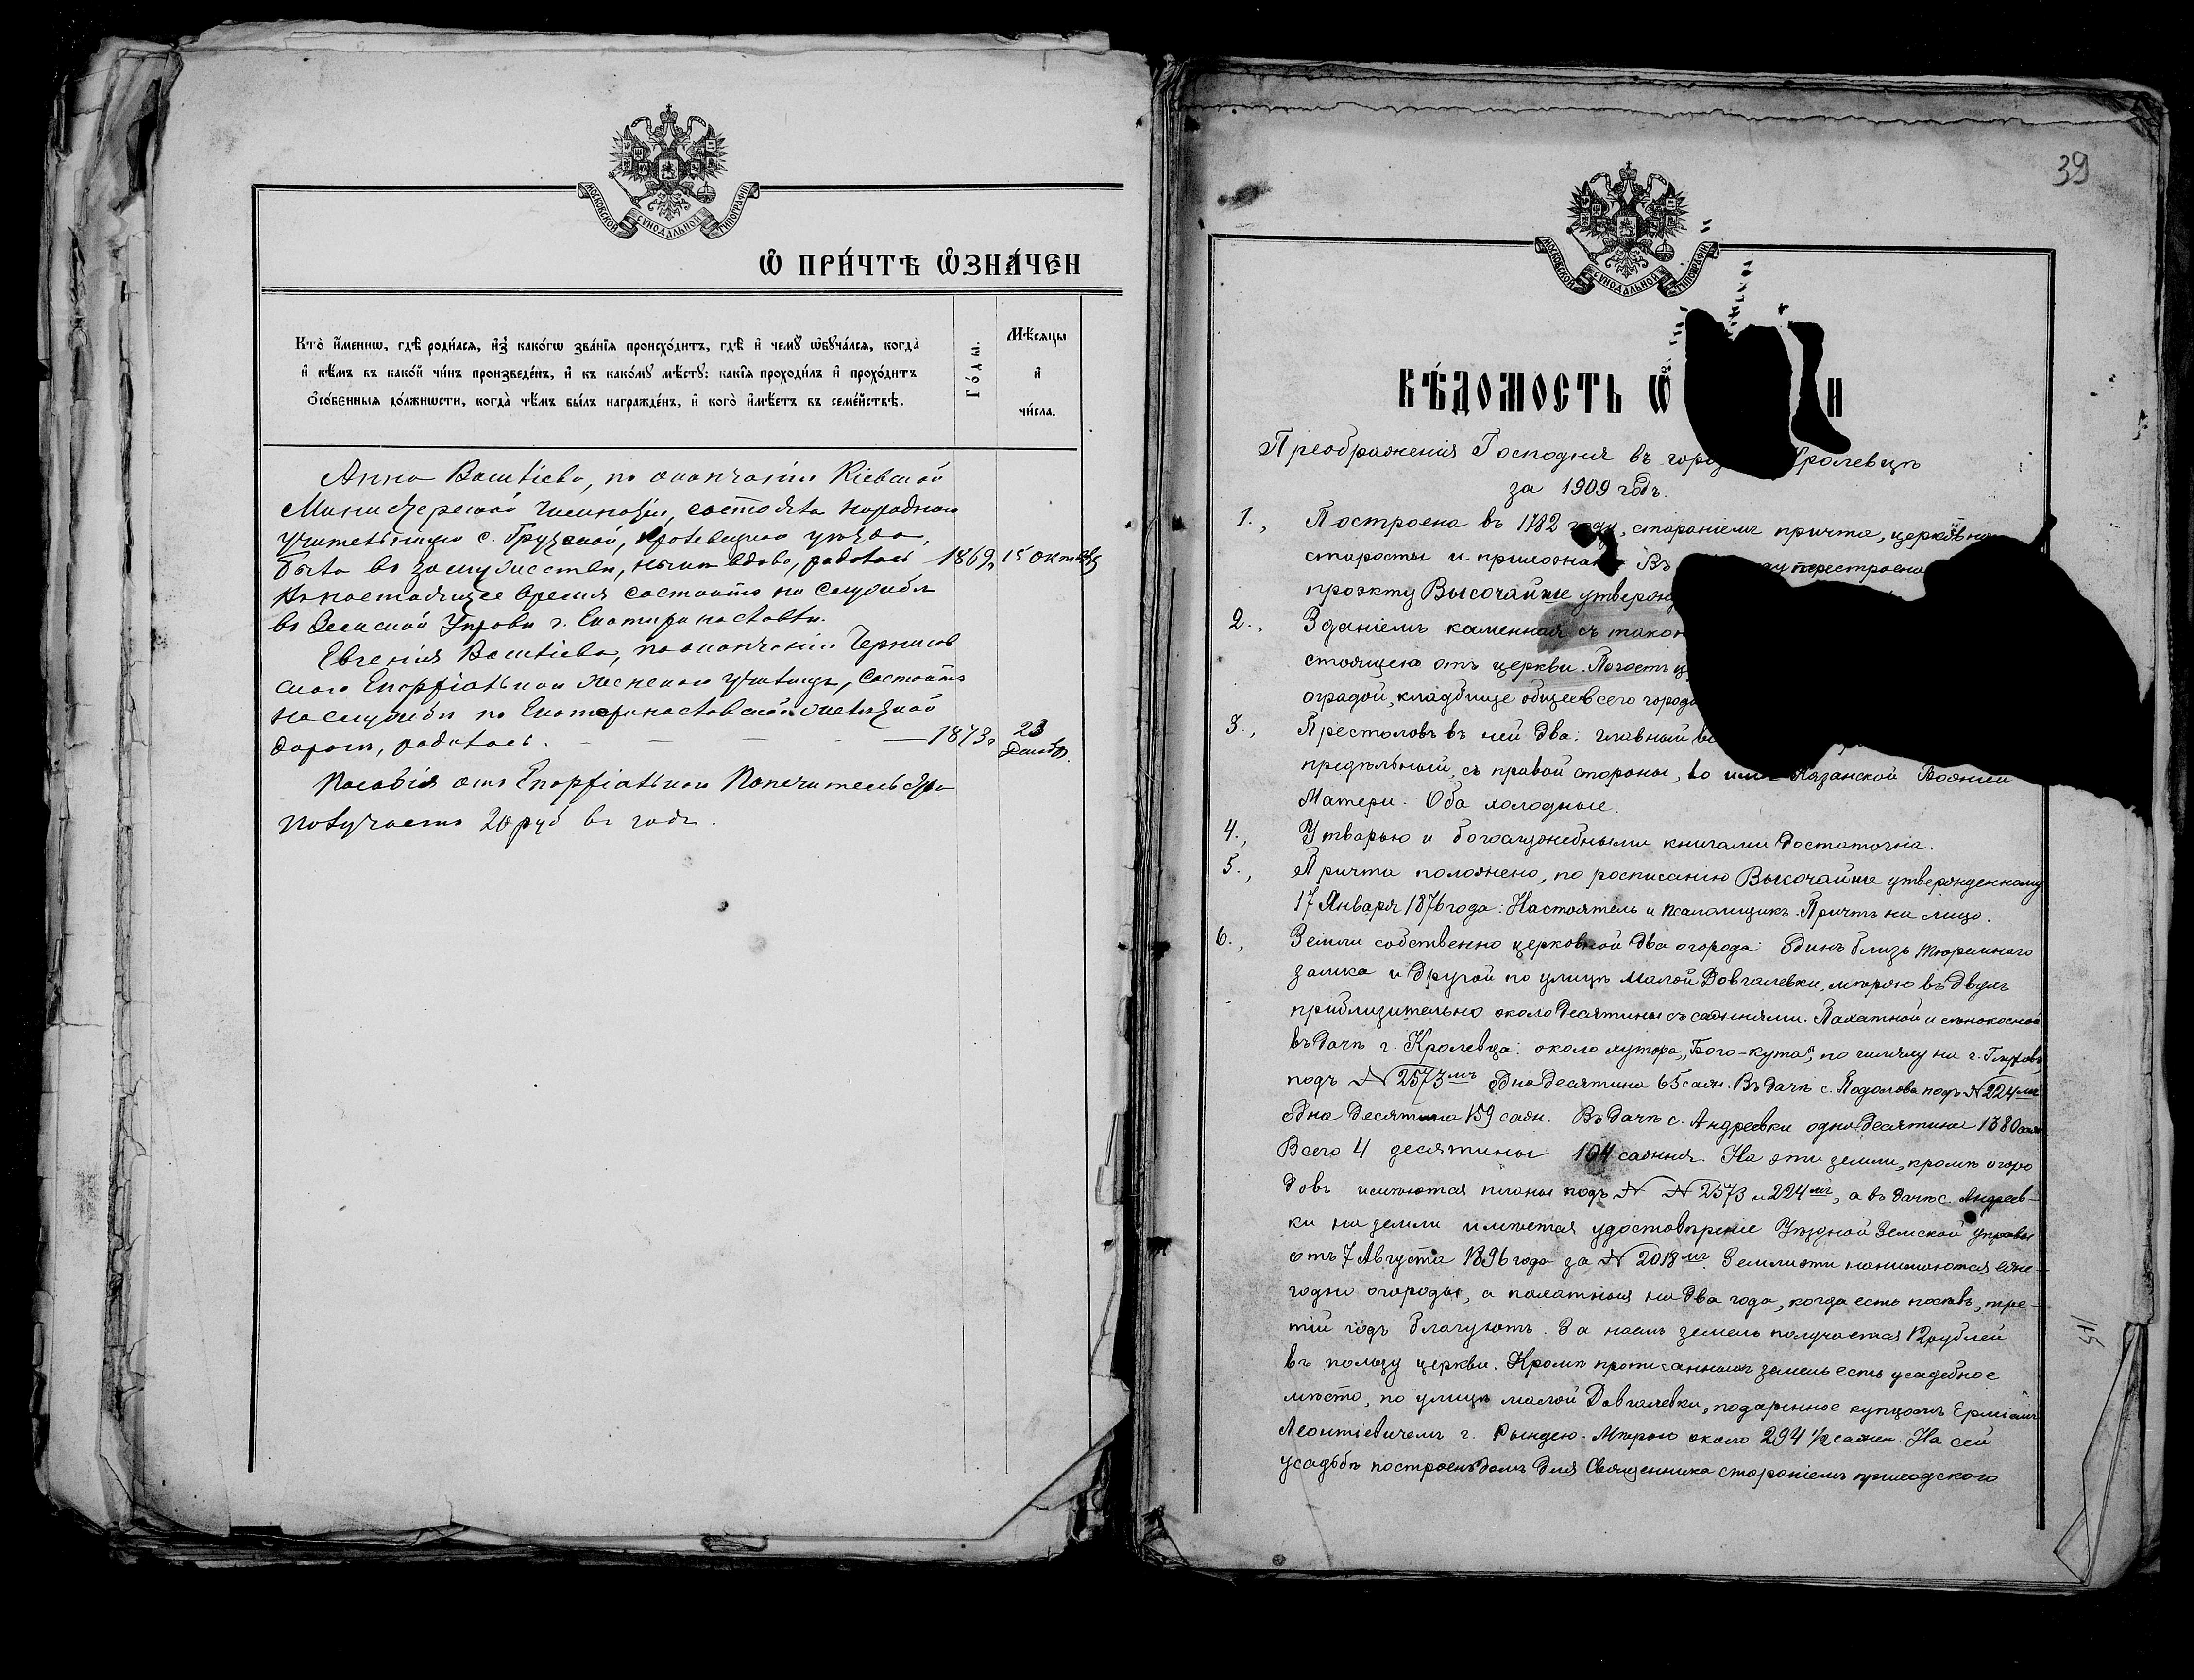 МОСКОВСКОЙ СѴНОДАЛЬНОЙ ТИПОГРАФІИ
Ѡ ПРИ́ЧТѢ ѠЗНА́ЧЕН
Кто̀ и҆́меннѡ, гдѣ̀ роди́лсѧ, и҆з̾ како́гѡ зва́нїѧ происхо́дитъ, гдѣ̀ и҆ чемꙋ̀ ѡ҆бꙋча́лсѧ, когда̀
и҆ кѣ́мъ въ како́й чи́нъ произведе́нъ, и҆ къ како́мꙋ мѣ́стꙋ: какі̑ѧ проходи́лъ и҆ прохо́дитъ
ѻ҆со́бенныѧ до́лжнѡсти, когда̀ чѣ́мъ бы́лъ награжде́нъ, и҆ кого̀ и҆мѣ́етъ въ семе́йствѣ.
Го́ды.
Мѣ́сѧцы
и҆
чи́сла.
Анна Васильева, по окончаніи Кіевской
Министерской Гимназіи, состояла народною
учительницею с. Грузской, Кролевецкаго уѣзда,
была въ замужествѣ, нынѣ вдова, родилась 1869г. 15 Октября
Въ настоящее время состоитъ на службѣ
въ Земской Управѣ г. Екатеринославля.
Евгенія Васильева, по окончаніи Чернигов
скаго Епархіальнаго женскаго училища, состоитъ
на службѣ по Екатеринославской желѣзной
дорогѣ, родилась. — 1873г. 23 Декабр.
Пособія отъ Епархіальнаго Попечительства
получаетъ 20 руб въ годъ.
39
МОСКОВСКОЙ СѴНОДАЛЬНОЙ ТИПОГРАФІИ
ВѢ́ДОМОСТЬ Ѡ И
Преображенія Господня въ Кролевцѣ
за 1909 годъ.
1., Построена въ 1782 году, стараніемъ причта, церковна
старосты и прихожанъ Въ перестроена
проэкту Высочайше утвержд
2., Зданіемъ каменная съ таков
стоящею отъ церкви. Погостъ
оградой, кладбище общее всего города
3., Престоловъ въ ней два: главный во
предѣльный, съ правой стороны, во имя Казанской Божіей
Матери. Оба холодные.
4., Утварью и богослужебными книгами достаточна.
5., Причта положено, по росписанію Высочайше утвержденному
17 Января 1876 года: Настоятель и псаломщикъ. Причтъ на лицо.
6., Земли собственно церковной два огорода: одинъ близь тюремнаго
замка и другой по улицѣ Малой Довгалевки, мѣрою въ двухъ
приблизительно около десятины съ саженями. Пахатной и сѣнокосной
въ дачѣ г. Кролевца: около хутора „Бого-кута", по гиляху на г. Глуховъ
подъ № 2573мъ одна десятина 65 саж. Въ дачѣ с. Подолова подъ № 224мъ
одна десятина 159 саж. Въ дачѣ с. Андреевки одна десятина 1380 саж
Всего 4 десятины 104 сажня. На эти земли, кромѣ огоро
довъ имѣются планы подъ № № 2573 и 224мъ, а въ дачѣ с. Андреев-
ки на земли имѣется удостовѣреніе Уѣздной Земской управы
отъ 7 Августа 1896 года за № 2018мъ. Земли эти нанимаются еже-
годно огороды, а пахатныя на два года, когда есть посѣвъ, тре-
тій годъ благуютъ. За наемъ земель получается 12 рублей
въ пользу церкви. Кромѣ прописанныхъ земель есть усадебное
мѣсто, по улицѣ малой Довгалевки, подаренное купцомъ Ерміемъ
Леонтіевичемъ г. Рындею. Мѣрою около 294 ½ сажен. На сей
усадьбѣ построенъ домъ для Священника стараніемъ приходского